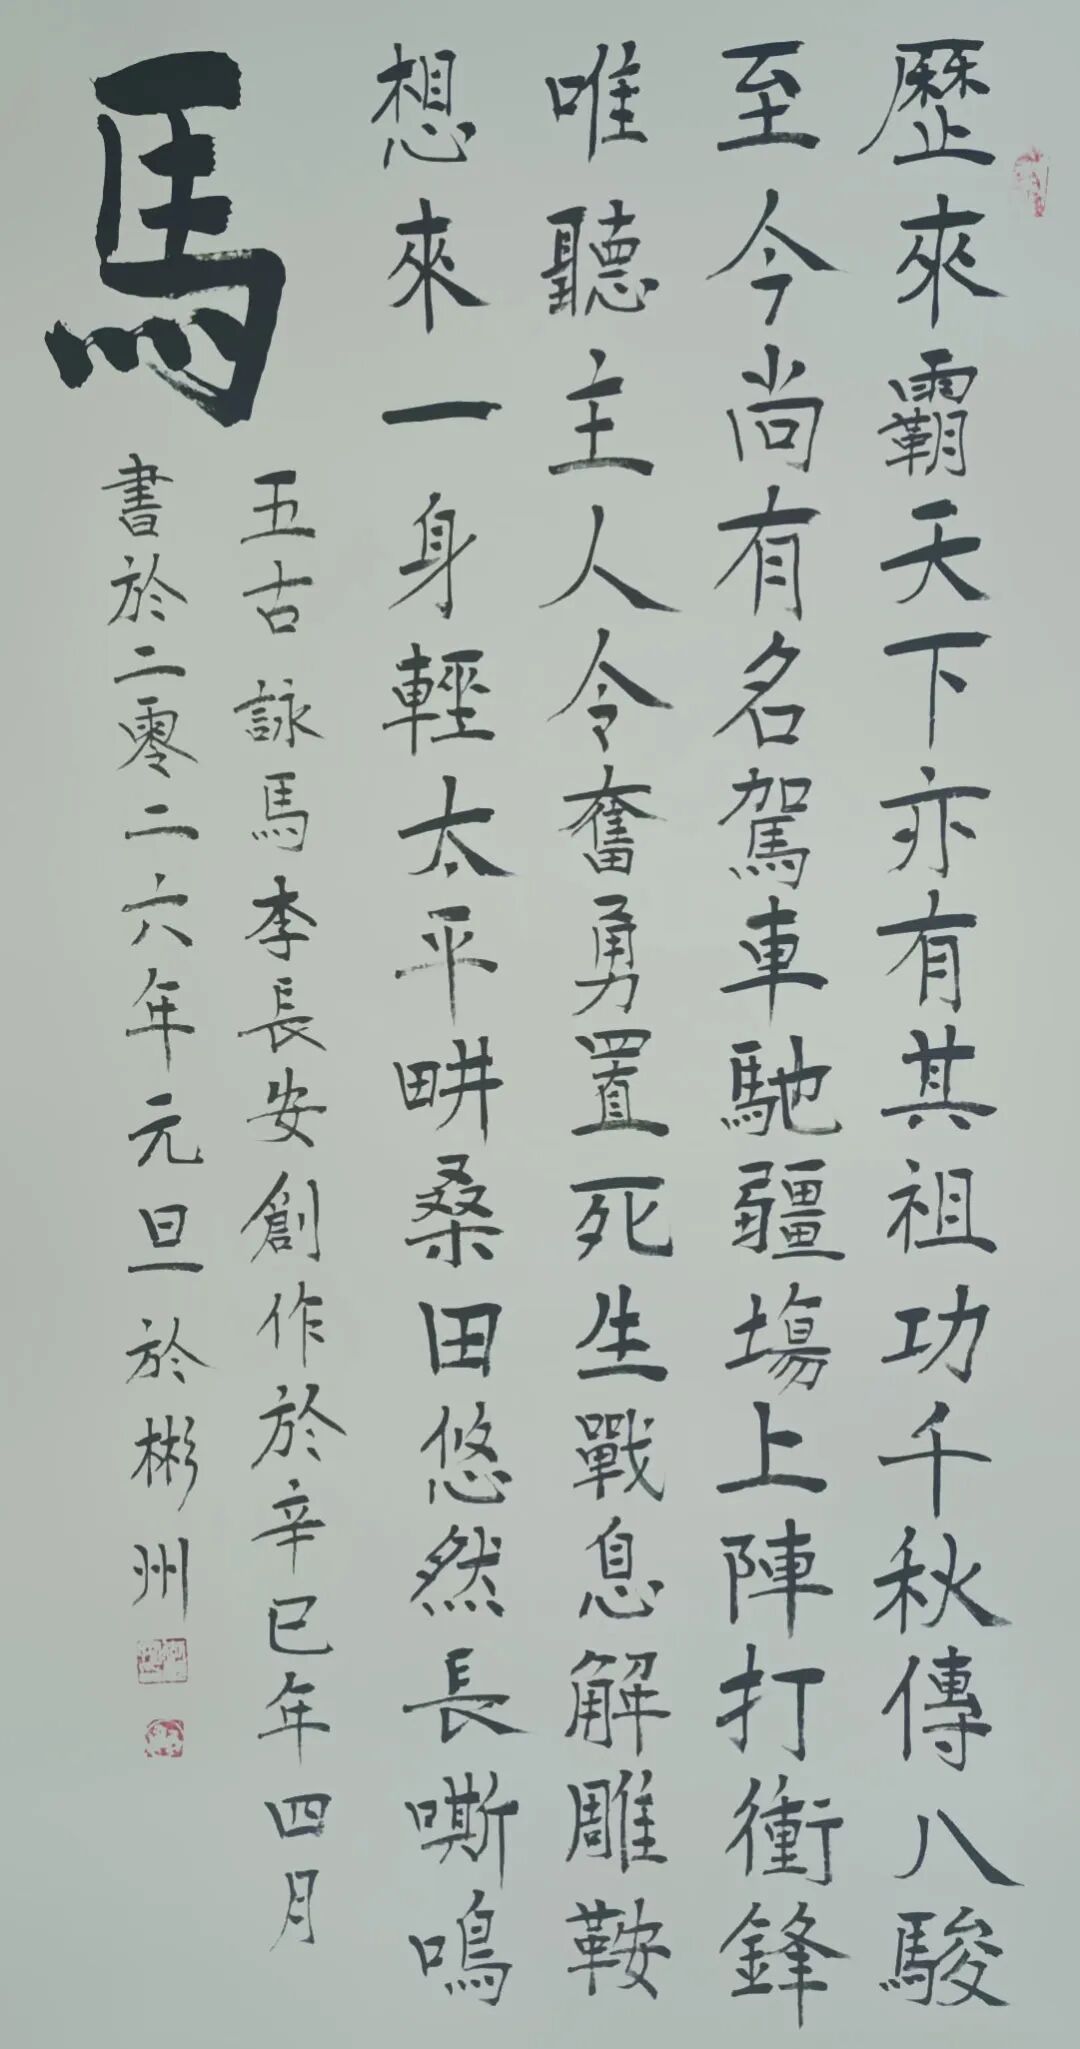 歷來霸天下亦有其祖功千秋傳八駿
至今尚有名駕車馳疆場上陣打衝鋒
唯聽主人令奮勇置死生戰息解雕鞍
想來一身輕太平畊桑田悠然長嘶鳴
馬
五古詠馬李長安創作於辛巳年四月
書於二零二六年元旦於彬州